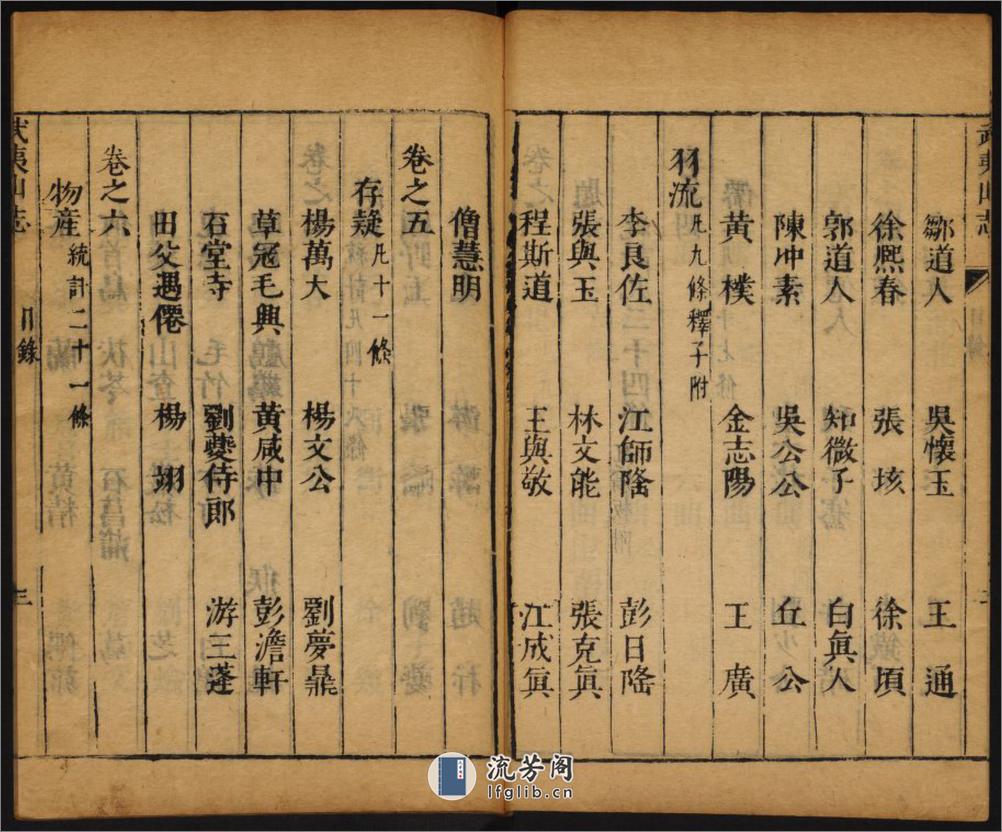 武夷山志
鄒道人 吳懷玉 王通
徐熙春 張垓 徐頃
郭道人 知微子 白眞人
陳冲素 吳公公 丘公
黃樸 金志陽 王廣
羽流 凡九條釋子附
李良佐 江師隆 彭日隆
張與玉 林文能 張克眞
程斯道 王與敬 江成眞
僧慧明
卷之五
存疑 凡十一條
楊萬大 楊文公 劉夢鼎
草冠毛輿 黃咸中 彭澹軒
石堂寺 劉夔侍郎 游三蓬
田父遇僊 楊翊
卷之六
物產 統計二十一條
武夷山志 目錄 三
流芳阁
lfglib.cn